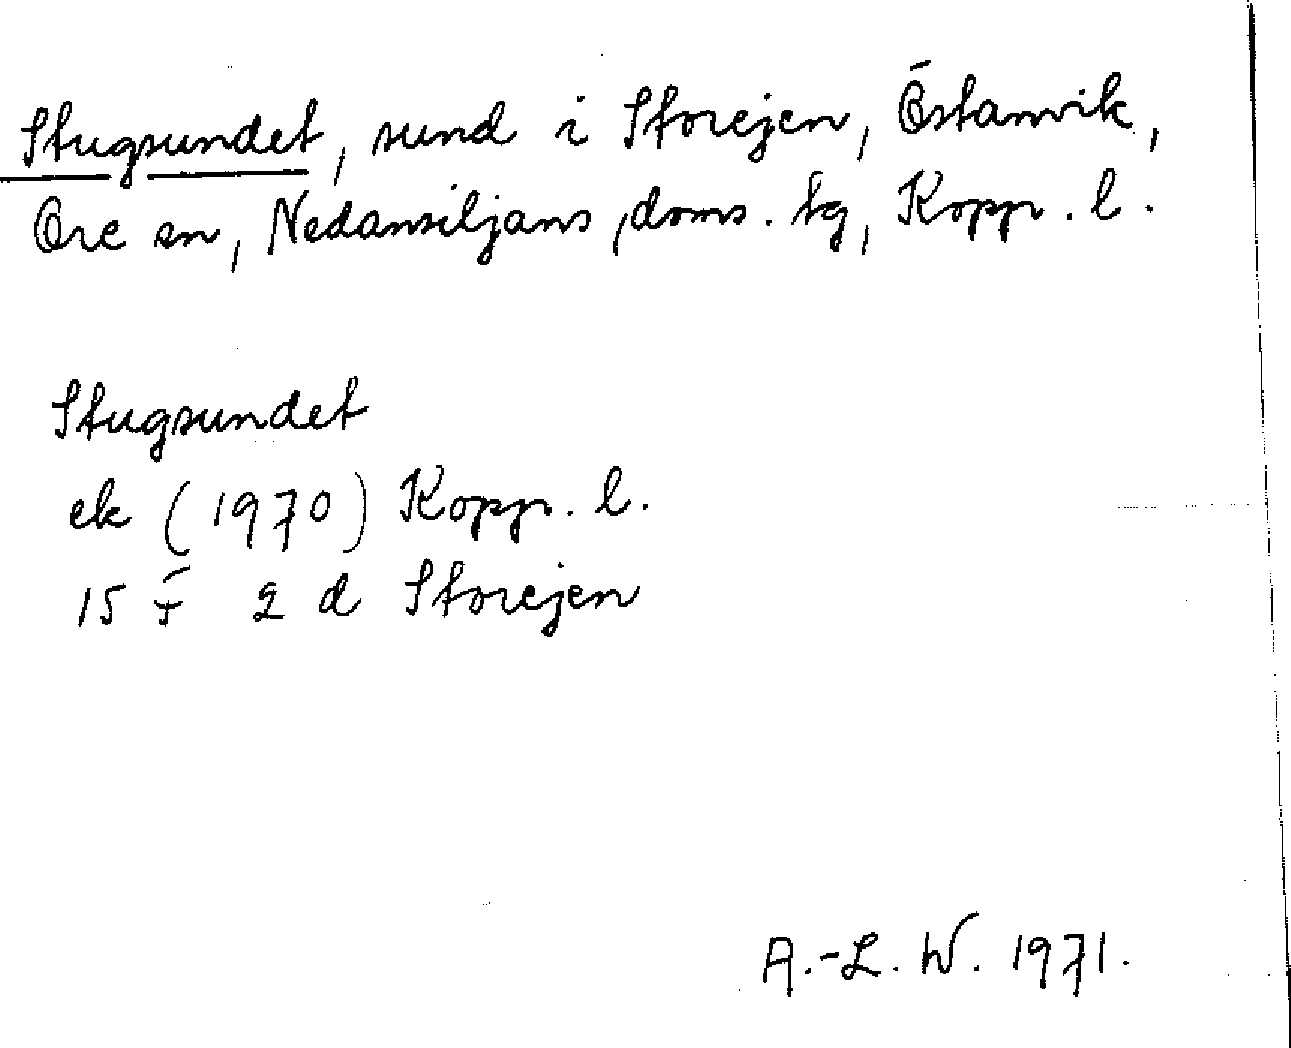 Stugsundet, sund i Storejen, Östanvik,
Ore sn, Nedansiljans doms. tg, Kopp. l.
Stugsundet
ek (1970) Kopp. l.
15 F 2 d Storejen
A.-L. W. 1971.